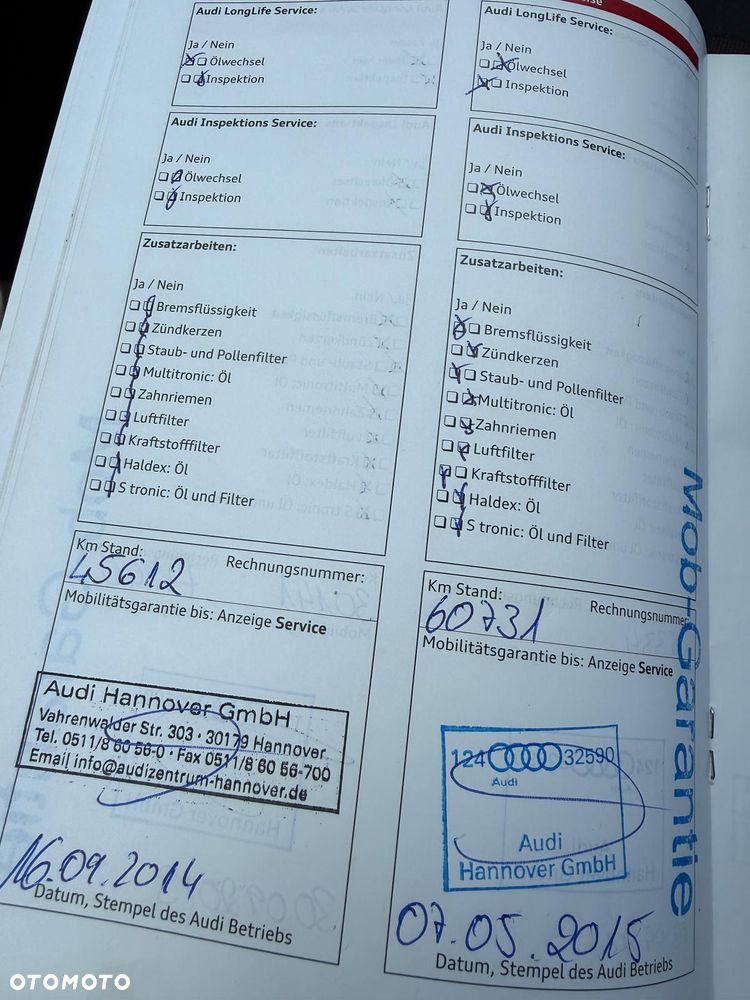 Audi LongLife Service:
Ja / Nein
Ölwechsel
Inspektion
Audi Inspektions Service:
Ja / Nein
Ölwechsel
Inspektion
Zusatzarbeiten:
Ja / Nein
Bremsflüssigkeit
Zündkerzen
Staub- und Pollenfilter
Multitronic: Öl
Zahnriemen
Luftfilter
Kraftstofffilter
Haldex: Öl
S tronic: Öl und Filter
Km Stand:
Rechnungsnummer:
45612
Mobilitätsgarantie bis: Anzeige Service
Audi Hannover GmbH
Vahrenwalder Str. 303 · 30179 Hannover
Tel. 0511/8 60 56-0 · Fax 0511/8 60 56-700
Email info@audizentrum-hannover.de
16.09.2014
Datum, Stempel des Audi Betriebs
Audi LongLife Service:
Ja / Nein
Ölwechsel
Inspektion
Audi Inspektions Service:
Ja / Nein
Ölwechsel
Inspektion
Zusatzarbeiten:
Ja / Nein
Bremsflüssigkeit
Zündkerzen
Staub- und Pollenfilter
Multitronic: Öl
Zahnriemen
Luftfilter
Kraftstofffilter
Haldex: Öl
S tronic: Öl und Filter
Km Stand:
Rechnungsnummer
60731
Mobilitätsgarantie bis: Anzeige Service
124 32590
Audi
Audi
Hannover GmbH
07.05.2015
Datum, Stempel des Audi Betriebs
Mob-Garantie
OTOMOTO